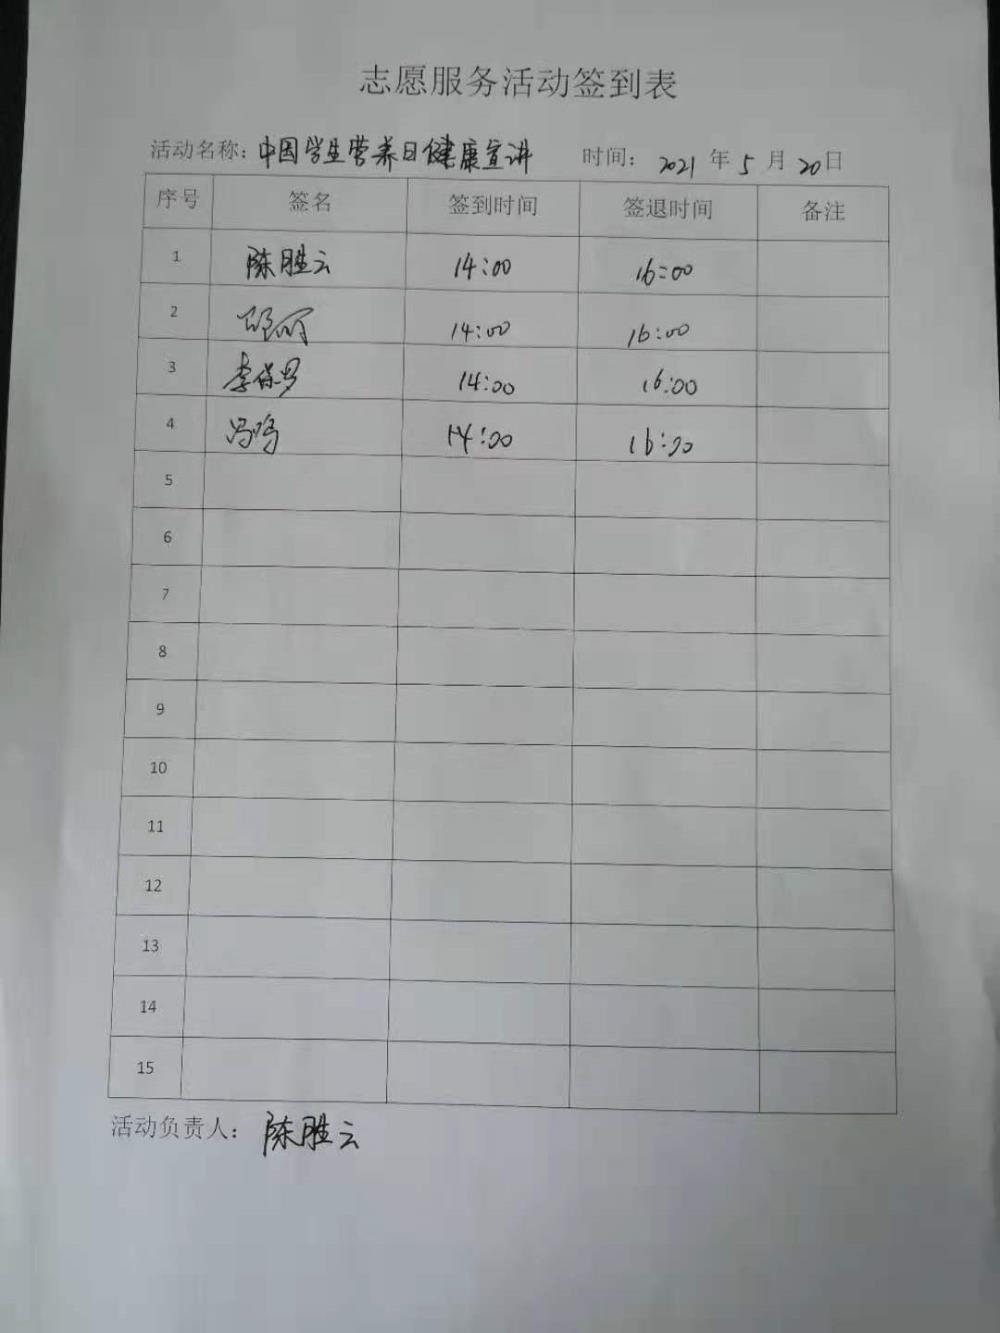 志愿服务活动签到表
活动名称：中国学生营养日健康宣讲 时间： 2021 年 5 月 20 日
序号 签名 签到时间 签退时间 备注
1 陈胜云 14:00 16:00
2 14:00 16:00
3 李保罗 14:00 16:00
4 冯鸣 14:00 16:00
5
6
7
8
9
10
11
12
13
14
15
活动负责人： 陈胜云